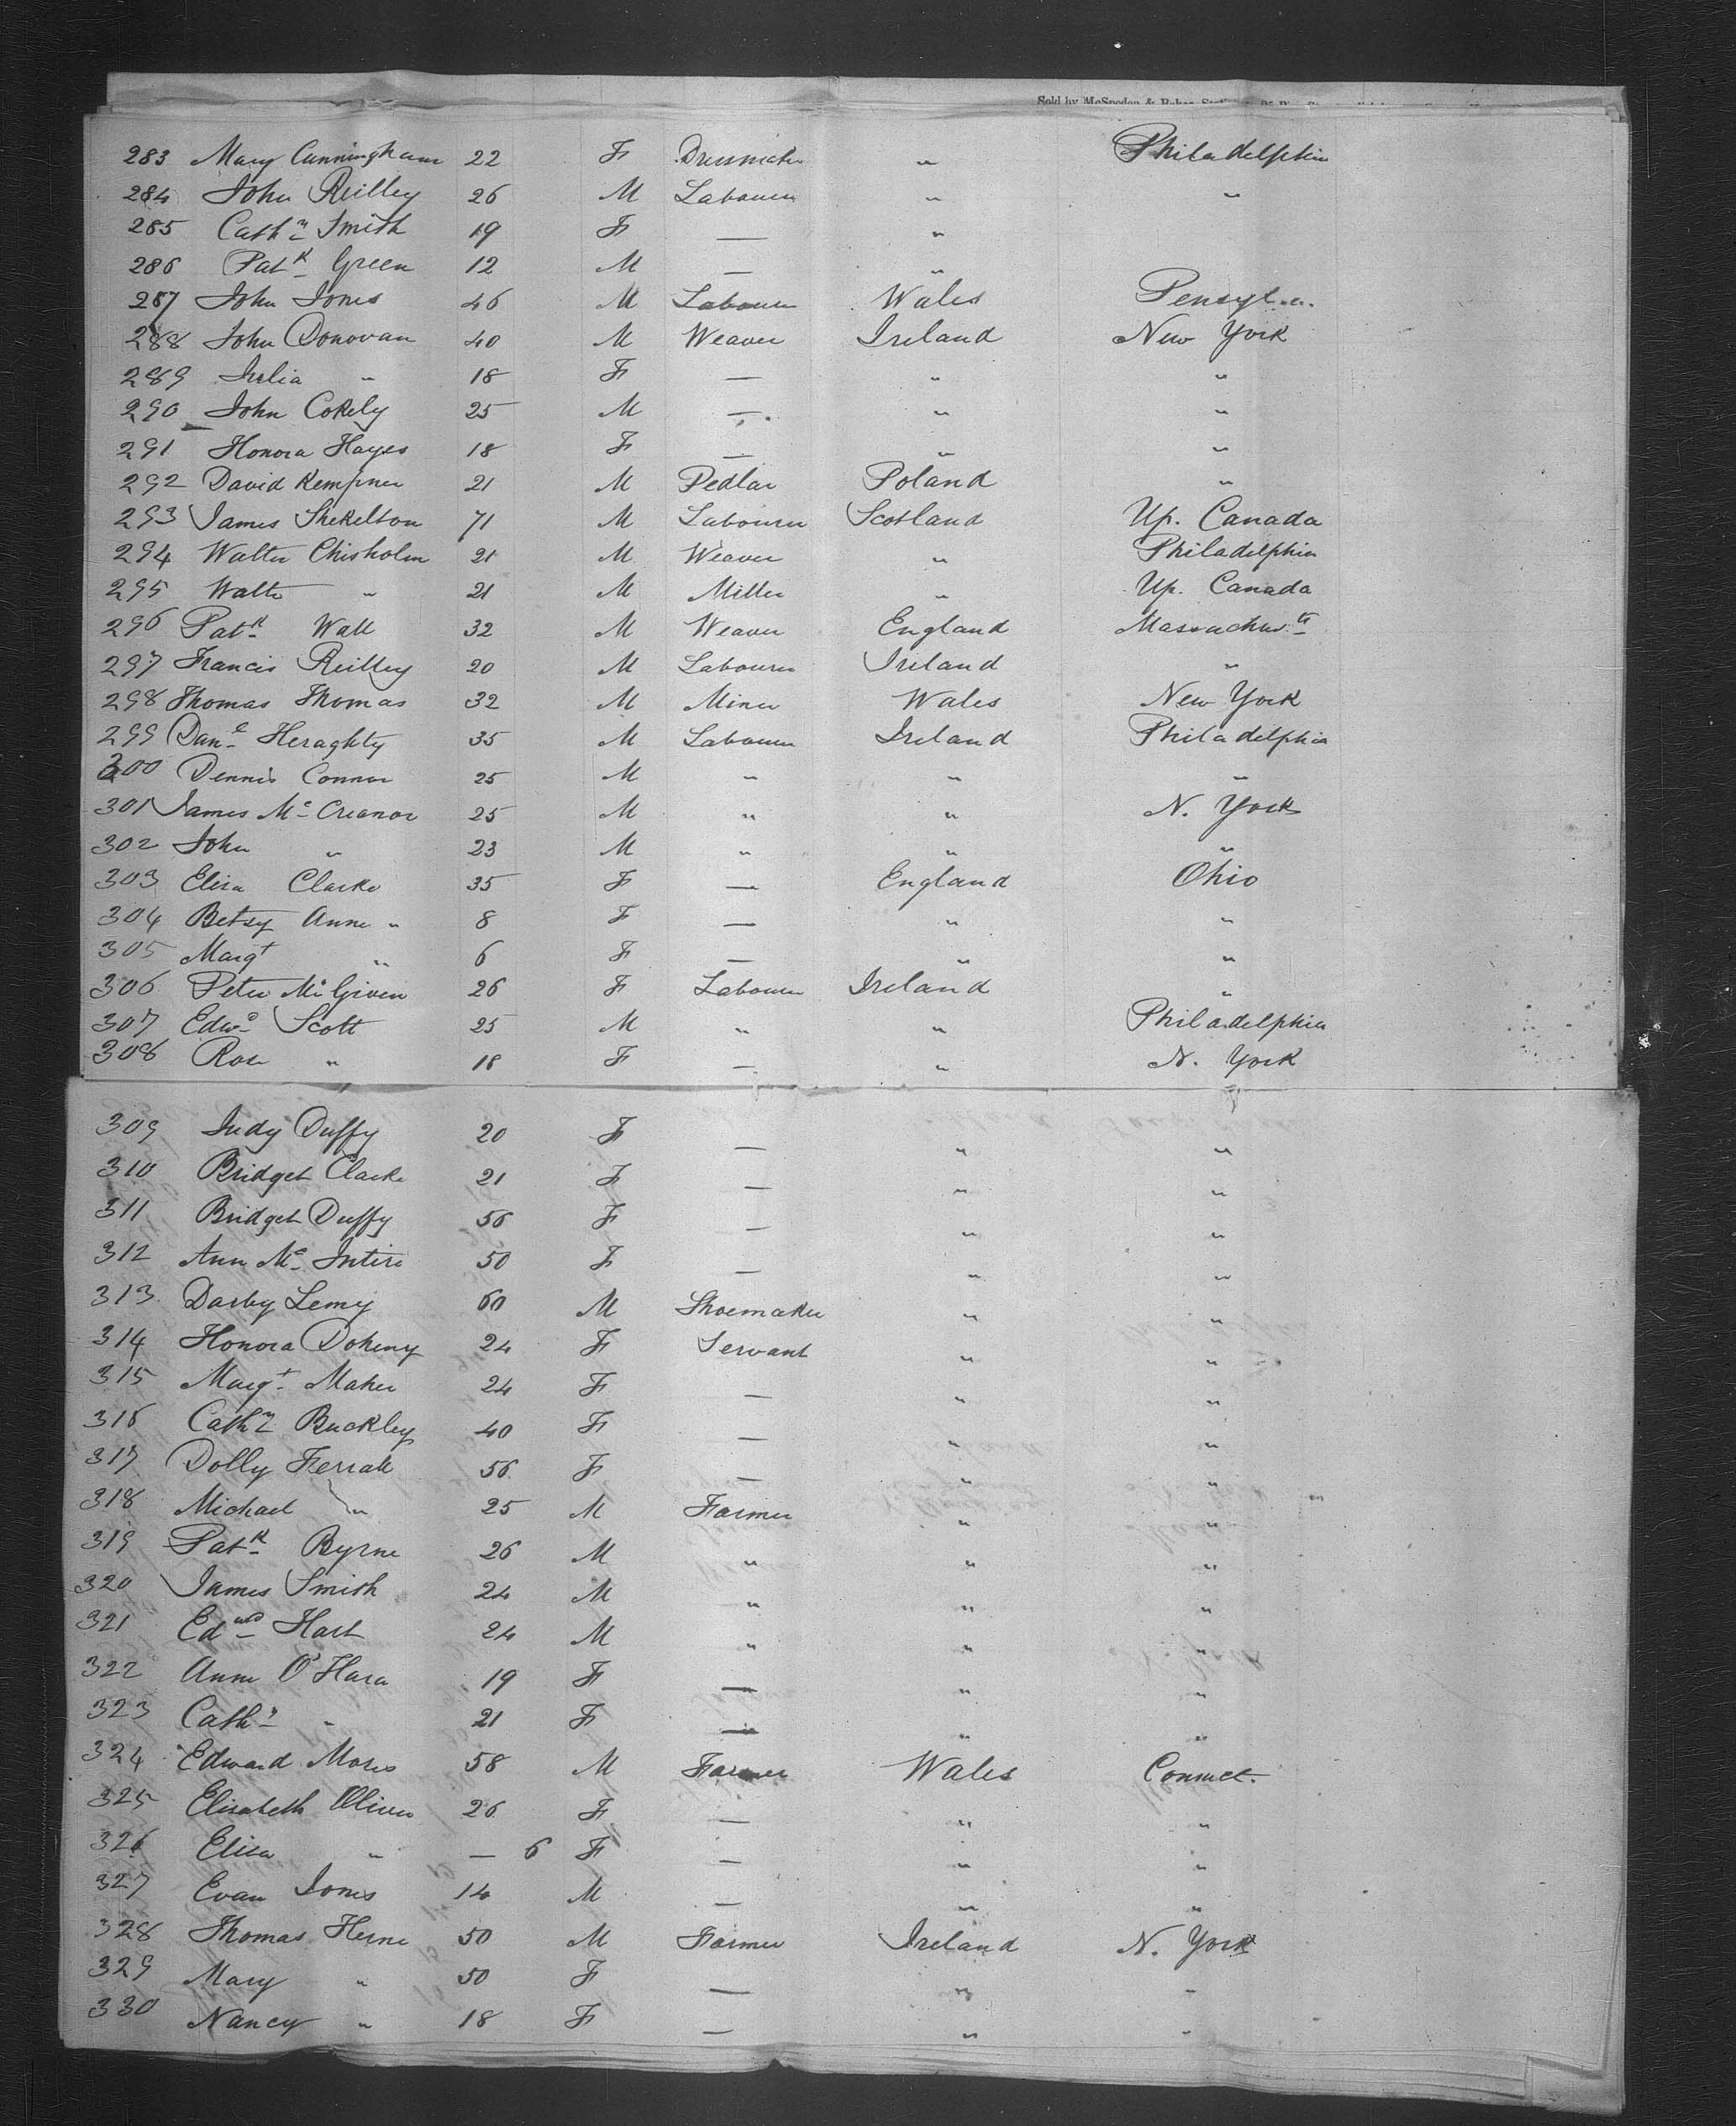 Sold by McSpedon & Baker,
283 Mary Cunningham 22 F Dressmaker " Philadelphia
284 John Reilley 26 M Labourer " "
285 Cathn Smith 19 F — "
286 Patk Green 12 M — "
287 John Jones 46 M Labourer Wales Pensyl.a.
288 John Donovan 40 M Weaver Ireland New York
289 Julia " 18 F — " "
290 John Cokely 25 M — " "
291 Honora Hayes 18 F — " "
292 David Kempner 21 M Pedlar Poland "
293 James Shekelton 71 M Labourer Scotland Up. Canada
294 Walter Chisholm 21 M Weaver " Philadelphia
295 Walter " 21 M Miller " Up. Canada
296 Patk Wall 32 M Weaver England Massachusts
297 Francis Reilley 20 M Labourer Ireland "
298 Thomas Thomas 32 M Miner Wales New York
299 Danl Heraghty 35 M Labourer Ireland Philadelphia
300 Dennis Connor 25 M " " "
301 James Mc Creanor 25 M " " N. York
302 John " 23 M " " "
303 Eliza Clarke 35 F — England Ohio
304 Betsy Anne " 8 F — " "
305 Margt " 6 F — " "
306 Peter McGiven 26 F Labourer Ireland "
307 Edwd Scott 25 M " " Philadelphia
308 Rose " 18 F — " N. York
309 Judy Duffy 20 F — " "
310 Bridget Clarke 21 F — " "
311 Bridget Duffy 56 F — " "
312 Ann Mc Intire 50 F — " "
313 Darby Lemy 60 M Shoemaker " "
314 Honora Doheny 24 F Servant " "
315 Margt Maher 24 F — " "
316 Cathn Buckley 40 F — " "
317 Dolly Ferrall 56 F — " "
318 Michael " 25 M Farmer " "
319 Patk Byrne 26 M " " "
320 James Smith 24 M " " "
321 Edwd Hart 24 M " " "
322 Anne O'Hara 19 F — " "
323 Cathn " 21 F — " "
324 Edward Mores 58 M Farmer Wales Connect.
325 Elizabeth Oliver 26 F — " "
326 Eliza " — 6 F — " "
327 Evan Jones 14 M — " "
328 Thomas Herne 50 M Farmer Ireland N. York
329 Mary " 50 F — " "
330 Nancy " 18 F — " "